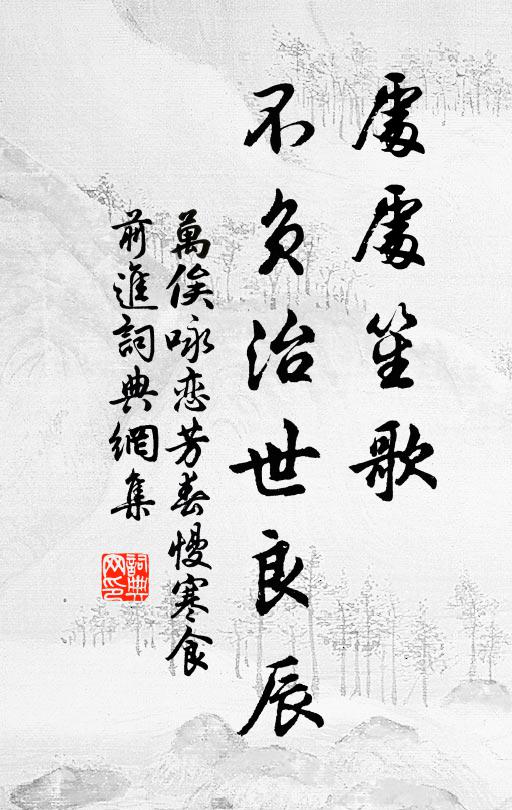 處處笙歌
不負治世良辰
萬俟咏恋芳春慢寒食
前進詞典網集
詞典網印